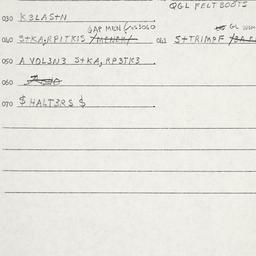 QGL FELT BOOTS
030 K3LAST∩
GAP MEN
040 S+KA,RPITKIS 041 S+TRIMPF
050 A VOL3N3 S+KA,RP3TK3
060
070 $ HALT3RS $